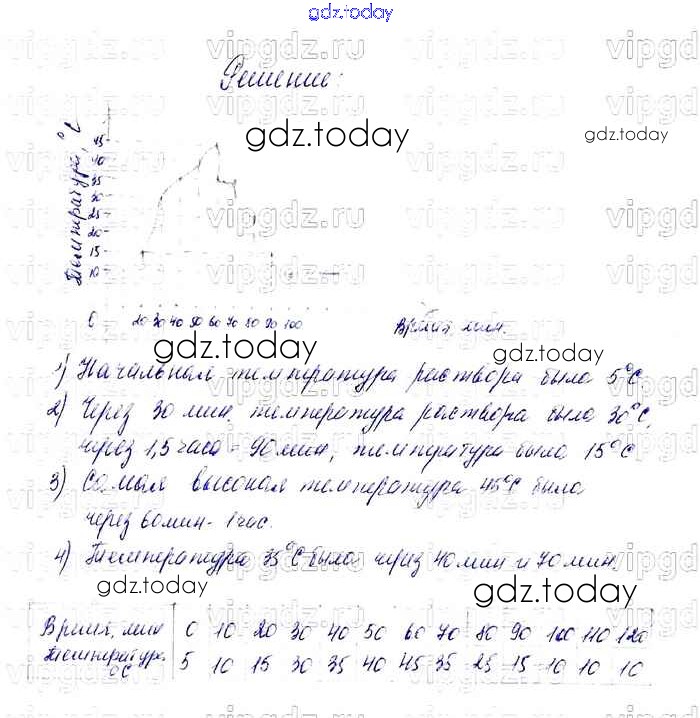 gdz.today
vipgdz.ru
Решение:
gdz.today
gdz.today
Температура, °С
45
40
35
30
25
20
15
10
0 20 30 40 50 60 70 80 90 100
Время, мин.
gdz.today
gdz.today
1) Начальная температура раствора была 5°С
2) Через 30 мин температура раствора была 30°С,
через 1,5 часа - 90 мин, температура была 15°С
3) Самая высокая температура 45°С была
через 60 мин - 1 час.
4) Температура 35°С была через 40 мин и 70 мин.
gdz.today
gdz.today
Время, мин 0 10 20 30 40 50 60 70 80 90 100 110 120
Температура, °С 5 10 15 30 35 40 45 35 25 15 10 10 10